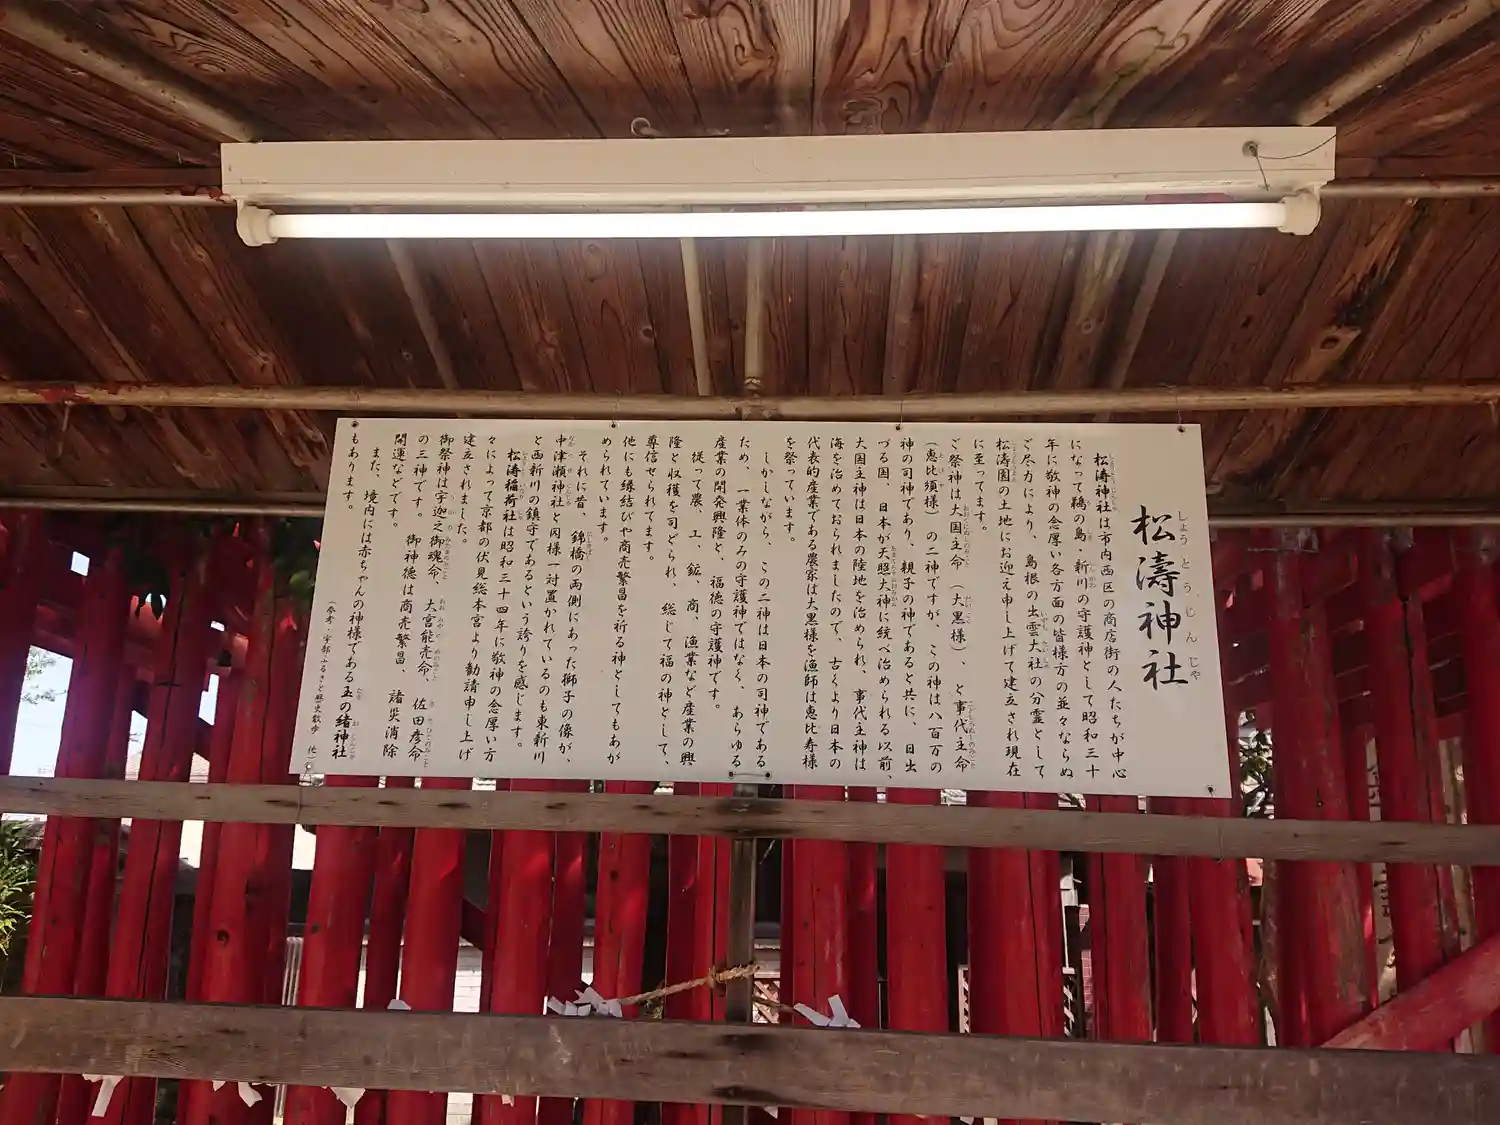 松濤神社
しょうとうじんじゃ
松濤神社は市内西区の商店街の人たちが中心
になって鵜の島・新川の守護神として昭和三十
年に敬神の念厚い各方面の皆様方の並々ならぬ
ご尽力により、島根の出雲大社の分霊として
松濤園の土地にお迎え申し上げて建立され現在
に至ってます。
ご祭神は大国主命(大黒様)、と事代主命
(恵比須様)の二神ですが、この神は八百万の
神の司神であり、親子の神であると共に、日出
づる国、日本が天照大神に統べ治められる以前、
大国主神は日本の陸地を治められ、事代主神は
海を治めておられましたので、古くより日本の
代表的産業である農家は大黒様を漁師は恵比寿様
を祭っています。
しかしながら、この二神は日本の司神である
ため、一業体のみの守護神ではなく、あらゆる
産業の開発興隆と、福徳の守護神です。
従って農、工、鉱、商、漁業など産業の興
隆と収穫を司どられ、総じて福の神として、
尊信せられてます。
他にも縁結びや商売繁昌を祈る神としてもあが
められています。
それに昔、錦橋の両側にあった獅子の像が、
中津瀬神社と同様一対置かれているのも東新川
と西新川の鎮守であるという誇りを感じます。
松濤稲荷社は昭和三十四年に敬神の念厚い方
々によって京都の伏見総本宮より勧請申し上げ
建立されました。
御祭神は宇迦之御魂命、大宮能売命、佐田彦命
の三神です。御神徳は商売繁昌、諸災消除
開運などです。
また、境内には赤ちゃんの神様である玉の緒神社
もあります。
(参考、宇部ふるさと歴史散歩 他)